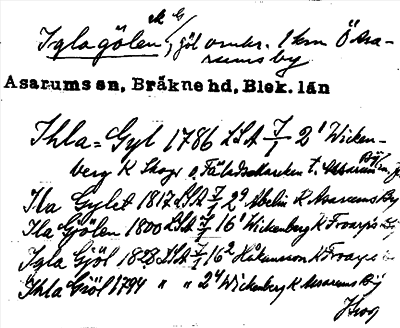 Igla gölen, göl omkr. 1 km Ö Asa-
rums by
Asarums sn, Bräkne hd, Blek. län
Ihla = Gyl 1786 LSA 7/1 2¹ Wicken-
berg K Skogs o. Fäladsmarken t. Asarums
Ila Gylet 1817 LSA 7/1 2⁹ Abelin K Asarums By
Ila Gölen 1800 LSA 7/1 16¹ Wickenberg K Froarps By
Igla Gjöl 1828 LSA 7/1 16² Håkansson K Froarps
Ihla Giöl 1794 " " 2⁴ Wickenberg K Asarums By
Skog